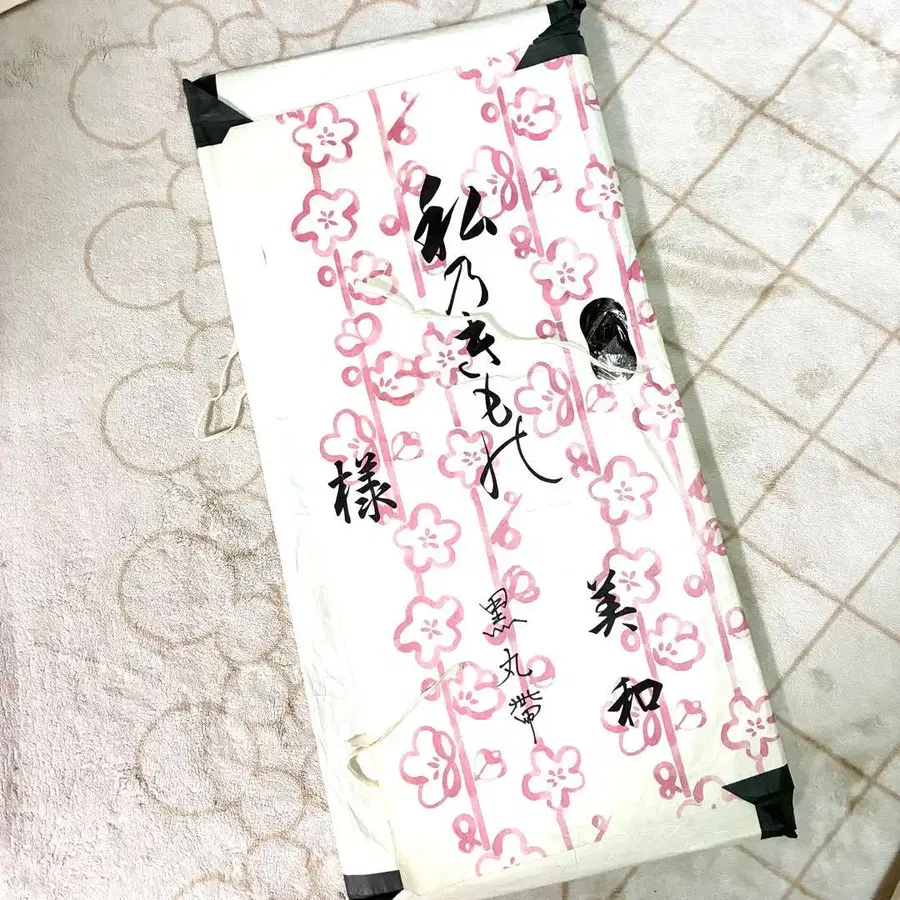 美和
私乃きもの
黒丸帯
様